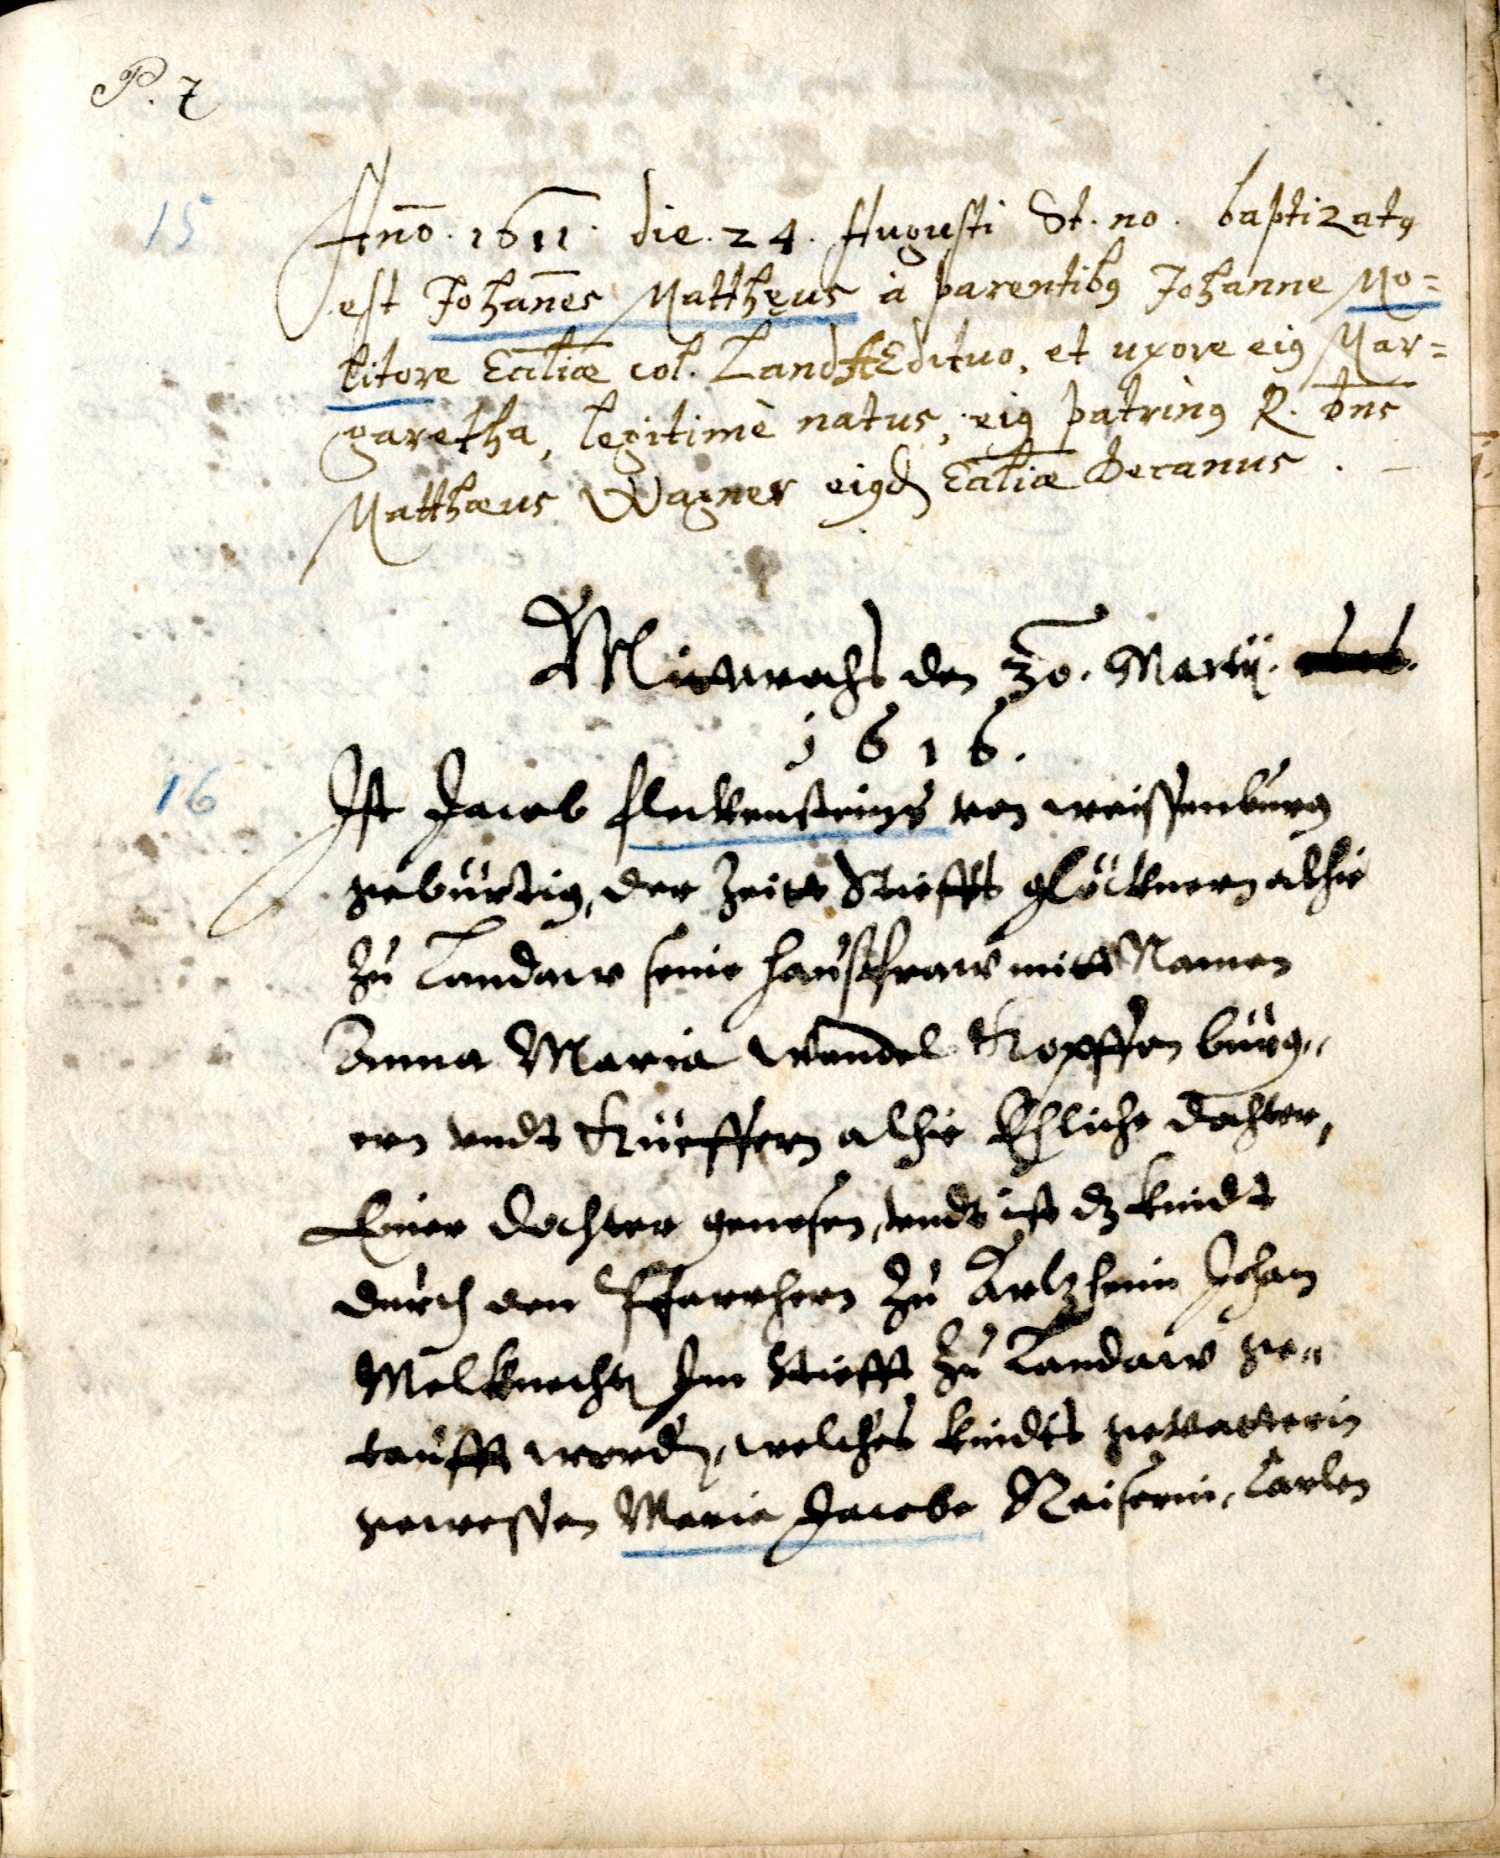 P. 7
15
Año. 1611. die. 24. Augusti St. no. baptizatꝰ
est Johañes Matthęus à parentibꝰ Johanne Mo=
litore Eccliæ col. Land Ædituo, et uxore eiꝰ Mar=
garetha, legitimè natus, eiꝰ patrinꝰ R. Dns
Matthæus Wagner eiusd Eccliæ Decanus.
Mitwochs den 30. Martij.
1616.
16
Ist Jacob fleckensteins von weissenburg
gebürtig, der Zeitt Stiefft glöcknern alhie
Zu Landaw seine haußfraw mitt Namen
Anna Maria Wendel Kopffen bürg„
ern undt Küeffern alhie Ehliche dochter,
Einer dochter genesen, undt ist dz kindt
durch den Pfarrhern Zu Artzheim Johan
Melknecht Im Stiefft Zu Landaw ge„
taufft word, welches kindts gevatterin
gewessen Maria Jacobe Keiserin, Carlen